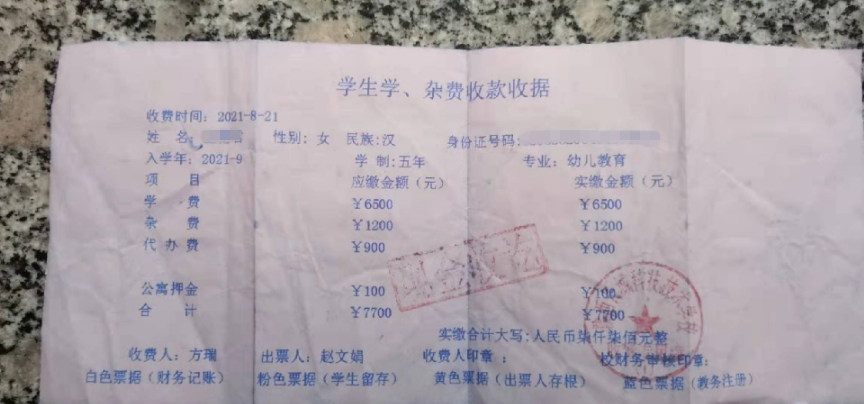 学生学、杂费收款收据
收费时间: 2021-8-21
姓 名 性别: 女 民族:汉 身份证号码:
入学年: 2021-9 学 制:五年 专业: 幼儿教育
项 目 应缴金额（元） 实缴金额（元）
学 费 ￥6500 ￥6500
杂 费 ￥1200 ￥1200
代办费 ￥900 ￥900
现金收讫
公寓押金 ￥100 ￥100
合 计 ￥7700 ￥7700
实缴合计大写:人民币柒仟柒佰元整
收费人: 方瑞 出票人: 赵文娟 收费人印章 : 校财务审核印章:
白色票据（财务记账） 粉色票据（学生留存） 黄色票据（出票人存根） 蓝色票据（教务注册）